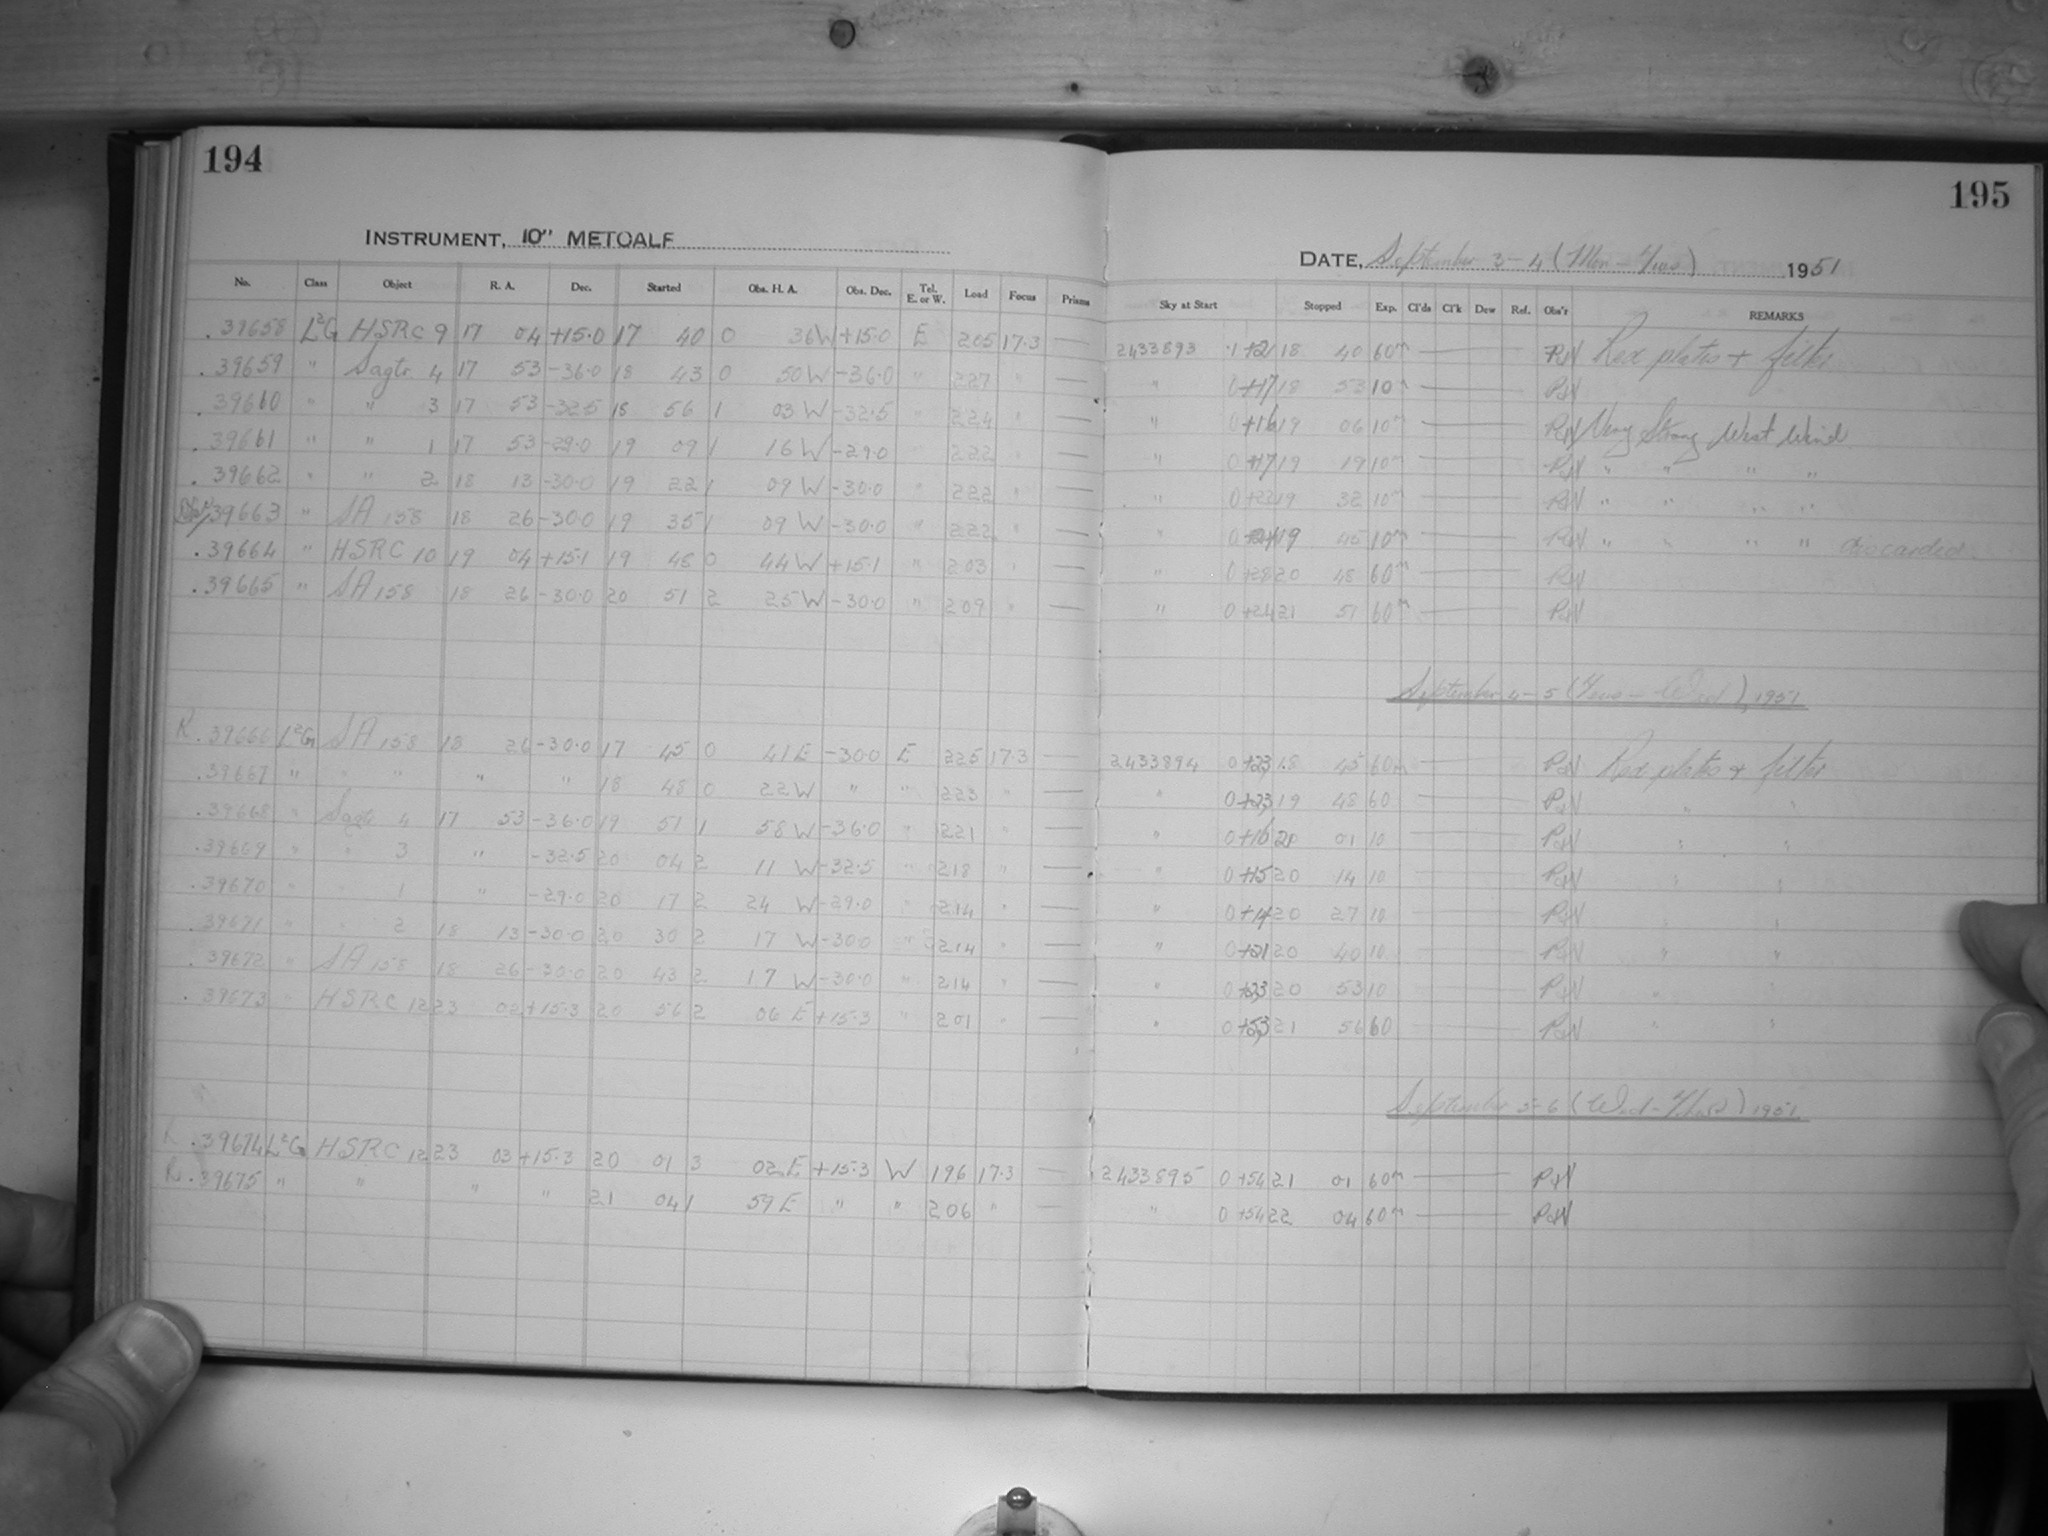 194
INSTRUMENT, 10" METCALF
No. Class Object R. A. Dec. Started Obs. H. A. Obs. Dec. Tel. E. or W. Load Focus Prisms
.39658 L²G HSRC 9 17 04 +15.0 17 40 0 36 W +15.0 E 205 17.3 —
.39659 " Sagtr. 4 17 53 -36.0 18 43 0 50 W -36.0 " 227 " —
.39660 " " 3 17 53 -32.5 18 56 1 03 W -32.5 " 224 " —
.39661 " " 1 17 53 -29.0 19 09 1 16 W -29.0 " 222 " —
.39662 " " 2 18 13 -30.0 19 22 1 09 W -30.0 " 222 " —
39663 " SA 158 18 26 -30.0 19 35 1 09 W -30.0 " 222 " —
.39664 " HSRC 10 19 04 +15.1 19 48 0 44 W +15.1 " 203 " —
.39665 " SA 158 18 26 -30.0 20 51 2 25 W -30.0 " 209 " —
R .39666 L²G SA 158 18 26 -30.0 17 45 0 41 E -30.0 E 225 17.3 —
.39667 " " " " " 18 48 0 22 W " " 223 " —
.39668 " Sagtr 4 17 53 -36.0 19 51 1 58 W -36.0 " 221 " —
.39669 " " 3 " -32.5 20 04 2 11 W -32.5 " 218 " —
.39670 " " 1 " -29.0 20 17 2 24 W -29.0 " 214 " —
.39671 " " 2 18 13 -30.0 20 30 2 17 W -30.0 " 214 " —
.39672 " SA 158 18 26 -30.0 20 43 2 17 W -30.0 " 214 " —
.39673 " HSRC 12 23 02 +15.3 20 56 2 06 E +15.3 " 201 " —
.39674 L²G HSRC 12 23 03 +15.3 20 01 3 02 E +15.3 W 196 17.3 —
R .39675 " " " " 21 04 1 59 E " " 206 " —
195
DATE, September 3-4 (Mon - Tues) 1951
Sky at Start Stopped Exp. Cl'ds Cl'k Dew Ref. Obs'r REMARKS
2433893 +21 18 40 60m — Red plates + filter
" 0 +17 18 53 10m —
" 0 +16 19 06 10m — Very Strong West Wind
" 0 +17 19 19 10m — " " " "
" 0 +22 19 32 10m — " " " "
" 0 19 45 10m — " " " " discarded.
" 0 +28 20 48 60m —
" 0 +24 21 51 60m —
September 4-5 (Tues - Wed), 1951
2433894 0 +23 18 45 60m — Red plates + filter
" 0 +23 19 48 60 — " "
" 0 +16 20 01 10 — " "
" 0 +15 20 14 10 — " "
" 0 +14 20 27 10 — " "
" 0 +21 20 40 10 — " "
" 0 +23 20 53 10 — " "
" 0 +53 21 56 60 — " "
September 5-6 (Wed - Thurs) 1951
2433895 0 +54 21 01 60m —
" 0 +54 22 04 60m —